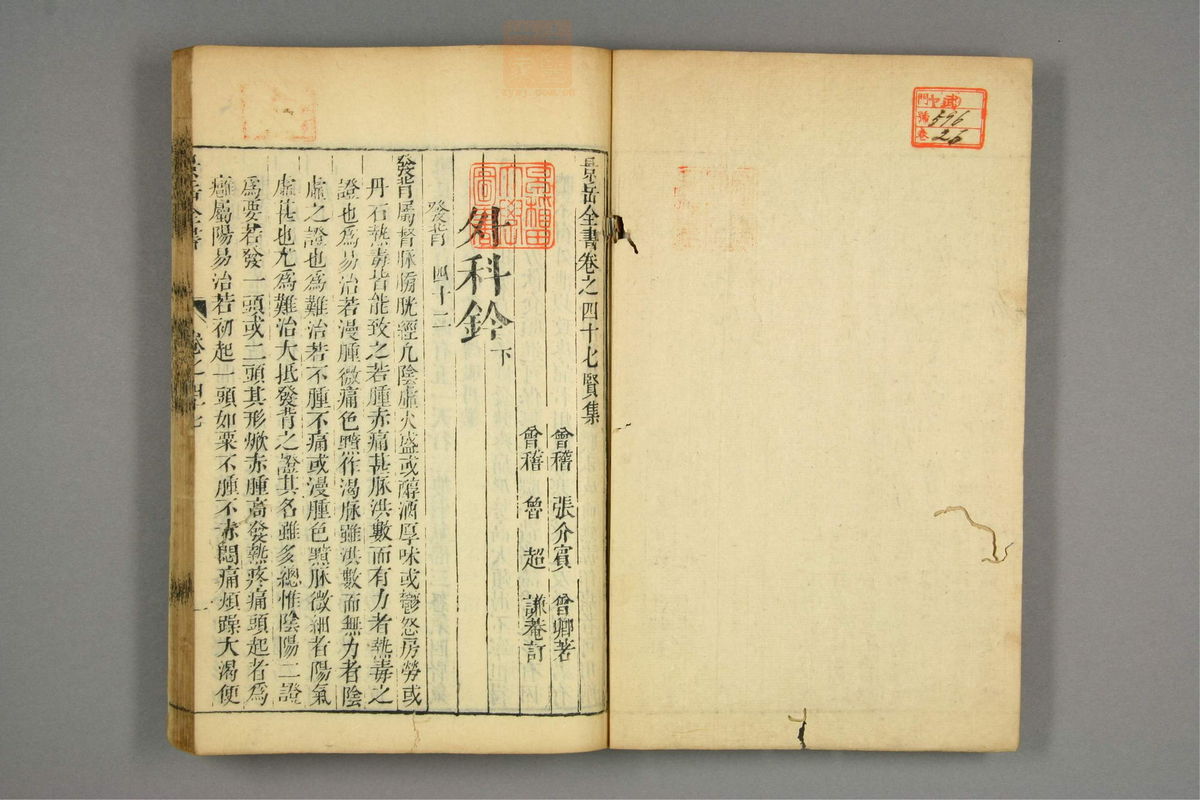 武
門
號 596
卷 26
景岳全書卷之四十七賢集
會稽 張介賓 會卿著
會稽 魯 超 謙菴訂
外科鈐下
發背 四十二
發背屬督脉膀胱經凡陰虛火盛或醇酒厚味或鬱怒房勞或
丹石熱毒皆能致之若腫赤痛甚脉洪數而有力者熱毒之
證也爲易治若漫腫微痛色黯作渴脉雖洪數而無力者陰
虛之證也爲難治若不腫不痛或漫腫色黯脉微細者陽氣
虛甚也尤爲難治大抵發背之證其名雖多總惟陰陽二證
爲要若發一頭或二頭其形焮赤腫高發熱疼痛頭起者爲
癰屬陽易治若初起一頭如粟不腫不赤悶痛煩躁大渴便
景岳全書 卷之四十七 一